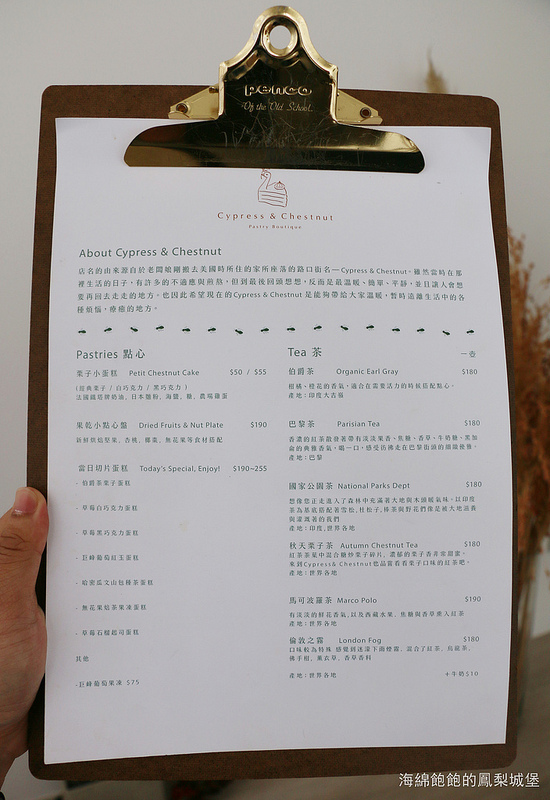 penco
Off the Old School.
Cypress & Chestnut
Pastry Boutique
About Cypress & Chestnut
店名的由來源自於老闆娘剛搬去美國時所住的家所座落的路口街名—Cypress & Chestnut。雖然當時在那
裡生活的日子，有許多的不適應與煎熬，但到最後回頭想想，反而是最溫暖、簡單、平靜，並且讓人會想
要再回去走走的地方。也因此希望現在的Cypress & Chestnut 是能夠帶給大家溫暖，暫時遠離生活中的各
種煩惱，療癒的地方。
Pastries 點心
栗子小蛋糕 Petit Chestnut Cake $50 / $55
(經典栗子 / 白巧克力 / 黑巧克力)
法國鐵塔牌奶油, 日本麵粉, 海鹽, 糖, 農場雞蛋
果乾小點心盤 Dried Fruits & Nut Plate $190
新鮮烘焙堅果, 杏桃, 椰棗, 無花果等食材搭配
當日切片蛋糕 Today's Special, Enjoy! $190~255
- 伯爵茶栗子蛋糕
- 草莓白巧克力蛋糕
- 草莓黑巧克力蛋糕
- 巨峰葡萄紅玉蛋糕
- 哈密瓜文山包種茶蛋糕
- 無花果焙茶果凍蛋糕
- 草莓石榴起司蛋糕
其他
-巨峰葡萄果凍 $75
Tea 茶 一壺
伯爵茶 Organic Earl Gray $180
柑橘、橙花的香氣，適合在需要活力的時候搭配點心。
產地：印度大吉嶺
巴黎茶 Parisian Tea $180
香濃的紅茶散發著帶有淡淡果香、焦糖、香草、牛奶糖、黑加
侖的典雅香氣，喝一口，感受彷彿走在巴黎街頭的細緻優雅。
產地：巴黎
國家公園茶 National Parks Dept $180
想像您正走進入了森林中充滿著大地與木頭暖氣味。以印度
茶為基底搭配著雪松, 杜松子, 綠茶與野花們像是被大地滋養
與潔淨著的我們
產地：印度, 世界各地
秋天栗子茶 Autumn Chestnut Tea $180
紅茶茶葉中混合糖炒栗子碎片，濃郁的栗子香非常甜蜜。
來到Cypress& Chestnut您品嘗看看栗子口味的紅茶吧。
產地：世界各地
馬可波羅茶 Marco Polo $190
有淡淡的鮮花香氣,以及西藏水果、焦糖與香草滲入紅茶
產地：世界各地
倫敦之霧 London Fog $180
口味較為特殊 感覺到迷濛下雨煙霧。混合了紅茶、烏龍茶、
佛手柑, 薰衣草, 香草香料
產地：世界各地 +牛奶$10
海綿飽飽的鳳梨城堡